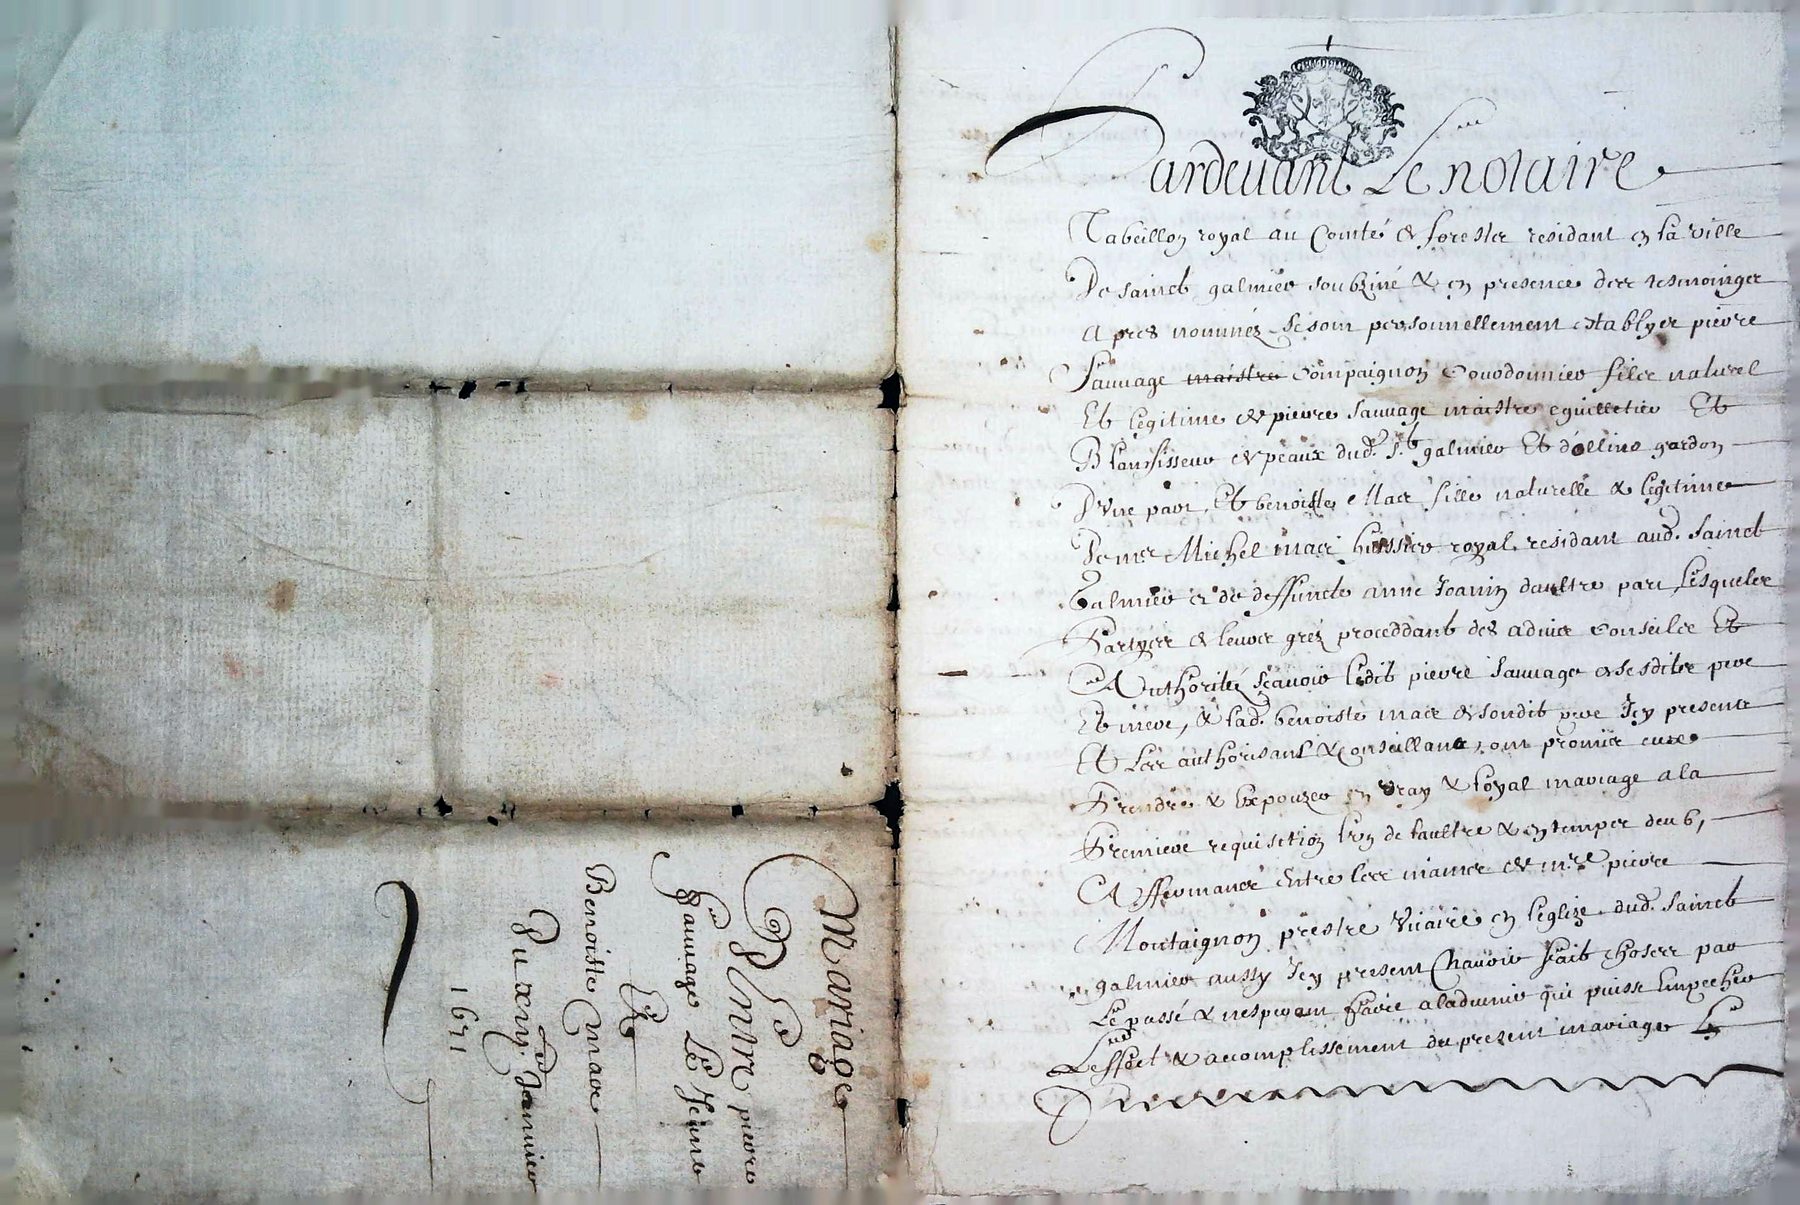 Pardevant Le notaire
Tabeillon royal au Comté de forestz residant en la ville
De sainct galmier soubziné & en presence des tesmoinges
Apres nommez se sont personnellement establyes pierre
Sauvage maistre Compaignon Courdonnier filz naturel
Et legitime de pierre sauvage maistre eguilletier Et
Blanchisseur de peaux dud. St galmier Et d'ollins gardon
D'Une part, Et benoiste Mace fille naturelle & legitime
De me Michel mace huissier royal residant aud. Sainct
Galmier & de deffuncte anne Joanin daultre part Lesqueles
Partyes de leurs grez proceddant des advice Conseilz Et
Authoritéz Scavoir Ledit pierre Sauvage de sesditz pere
Et mere, & lad. benoiste mace de sondit pere Icy presents
Et Les authorisant & Conseillant, ont promis eulx
Prendre & Expouzer en vray & loyal mariage a la
Premiere requisition l'un de laultre & en temps deub,
Affermances Entre les mains de mre pierre
Montaignon prestre Vicaire en leglize dud. Sainct
galmier aussy Icy present N'avoir fait choses par
Le passé & nesperant faire a ladvenir qui puisse Empecher
Leffect & accomplissement du present mariage
Mariage
De Pierre
Sauvage Le Jeune
Et
Benoiste Mace
Du Janvier
1671